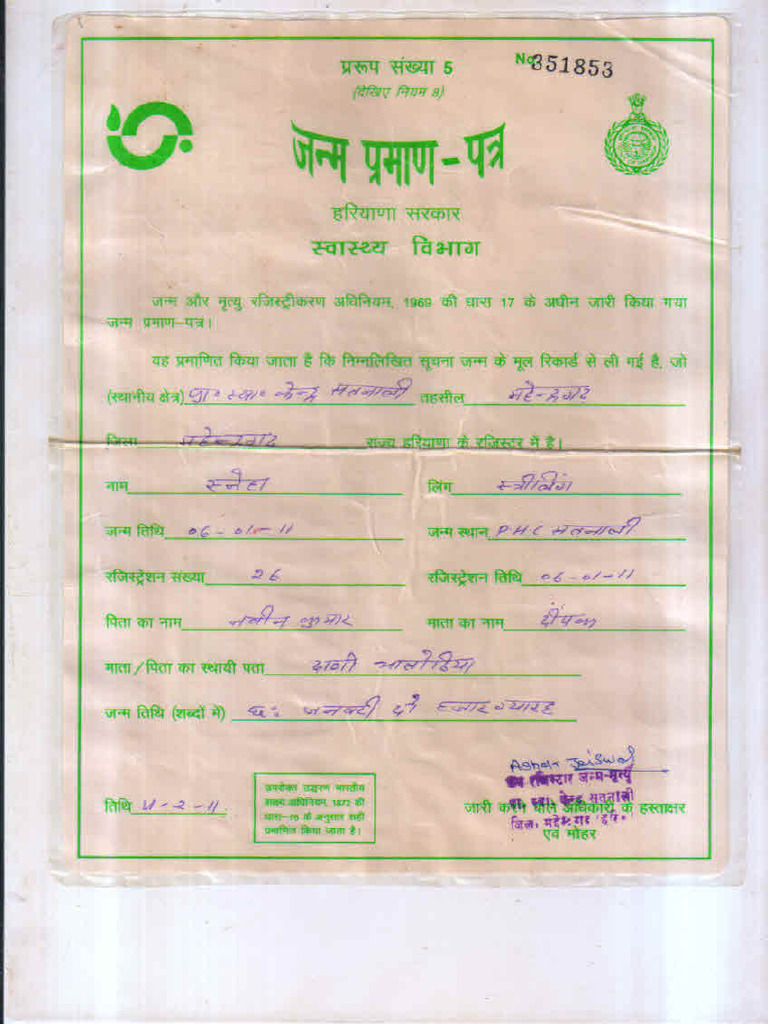 प्ररूप संख्या 5
No 351853
(देखिए नियम 8)
जन्म प्रमाण-पत्र
हरियाणा सरकार
स्वास्थ्य विभाग
जन्म और मृत्यु रजिस्ट्रीकरण अधिनियम, 1969 की धारा 17 के अधीन जारी किया गया
जन्म प्रमाण-पत्र।
यह प्रमाणित किया जाता है कि निम्नलिखित सूचना जन्म के मूल रिकार्ड से ली गई है, जो
(स्थानीय क्षेत्र) प्रा० स्वा० केन्द्र सतनाली तहसील महेन्द्रगढ़
जिला महेन्द्रगढ़ राज्य हरियाणा के रजिस्टर में है।
नाम स्नेहा लिंग स्त्रीलिंग
जन्म तिथि 06-01-11 जन्म स्थान PHC सतनाली
रजिस्ट्रेशन संख्या 26 रजिस्ट्रेशन तिथि 06-01-11
पिता का नाम नवीन कुमार माता का नाम
माता/पिता का स्थायी पता
जन्म तिथि (शब्दों में) छ: जनवरी दो हजार ग्यारह
उपरोक्त उद्धरण भारतीय
साक्ष्य अधिनियम, 1872 की
धारा-76 के अनुसार सही
प्रमाणित किया जाता है।
Ashok Jaiswal
उप रजिस्ट्रार जन्म-मृत्यु
प्रा. स्वा. केन्द्र सतनाली
जिला महेन्द्रगढ़
तिथि 4-2-11
जारी करने वाले अधिकारी के हस्ताक्षर
एवं मोहर